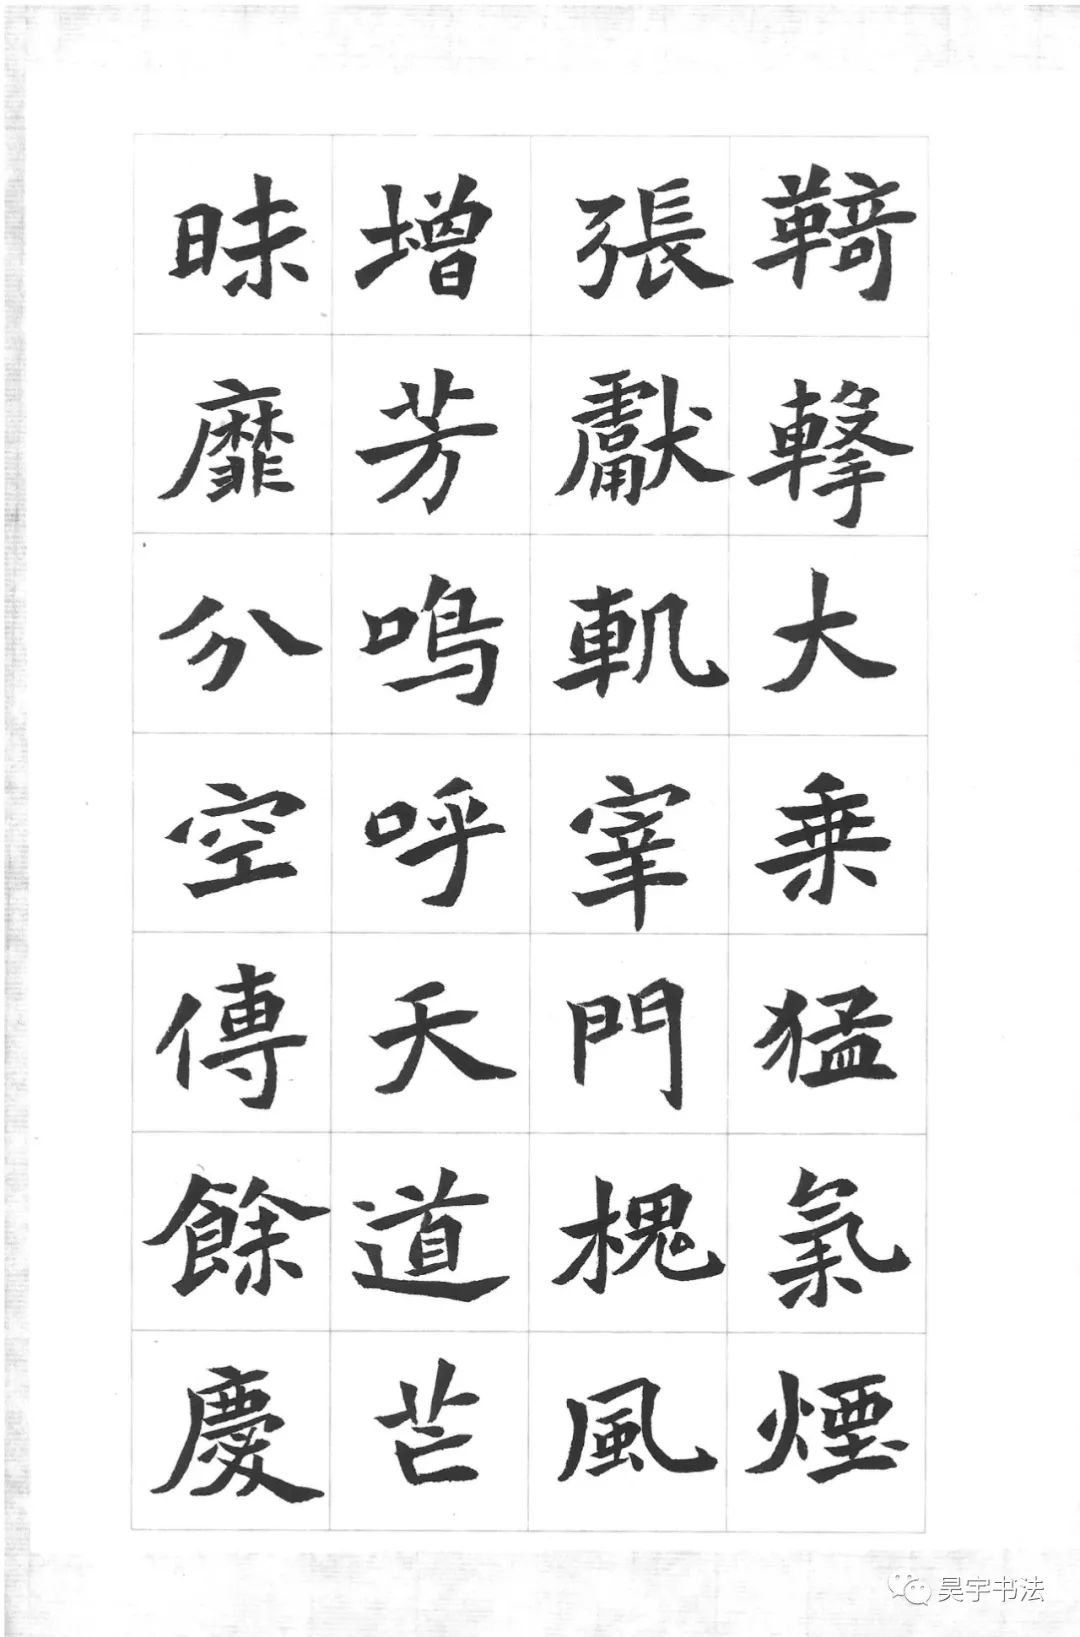 擊大乗猛氣煙
張獻軌宰門槐風
增芳嗚呼天道芒
昧靡分空傳餘慶
昊宇书法